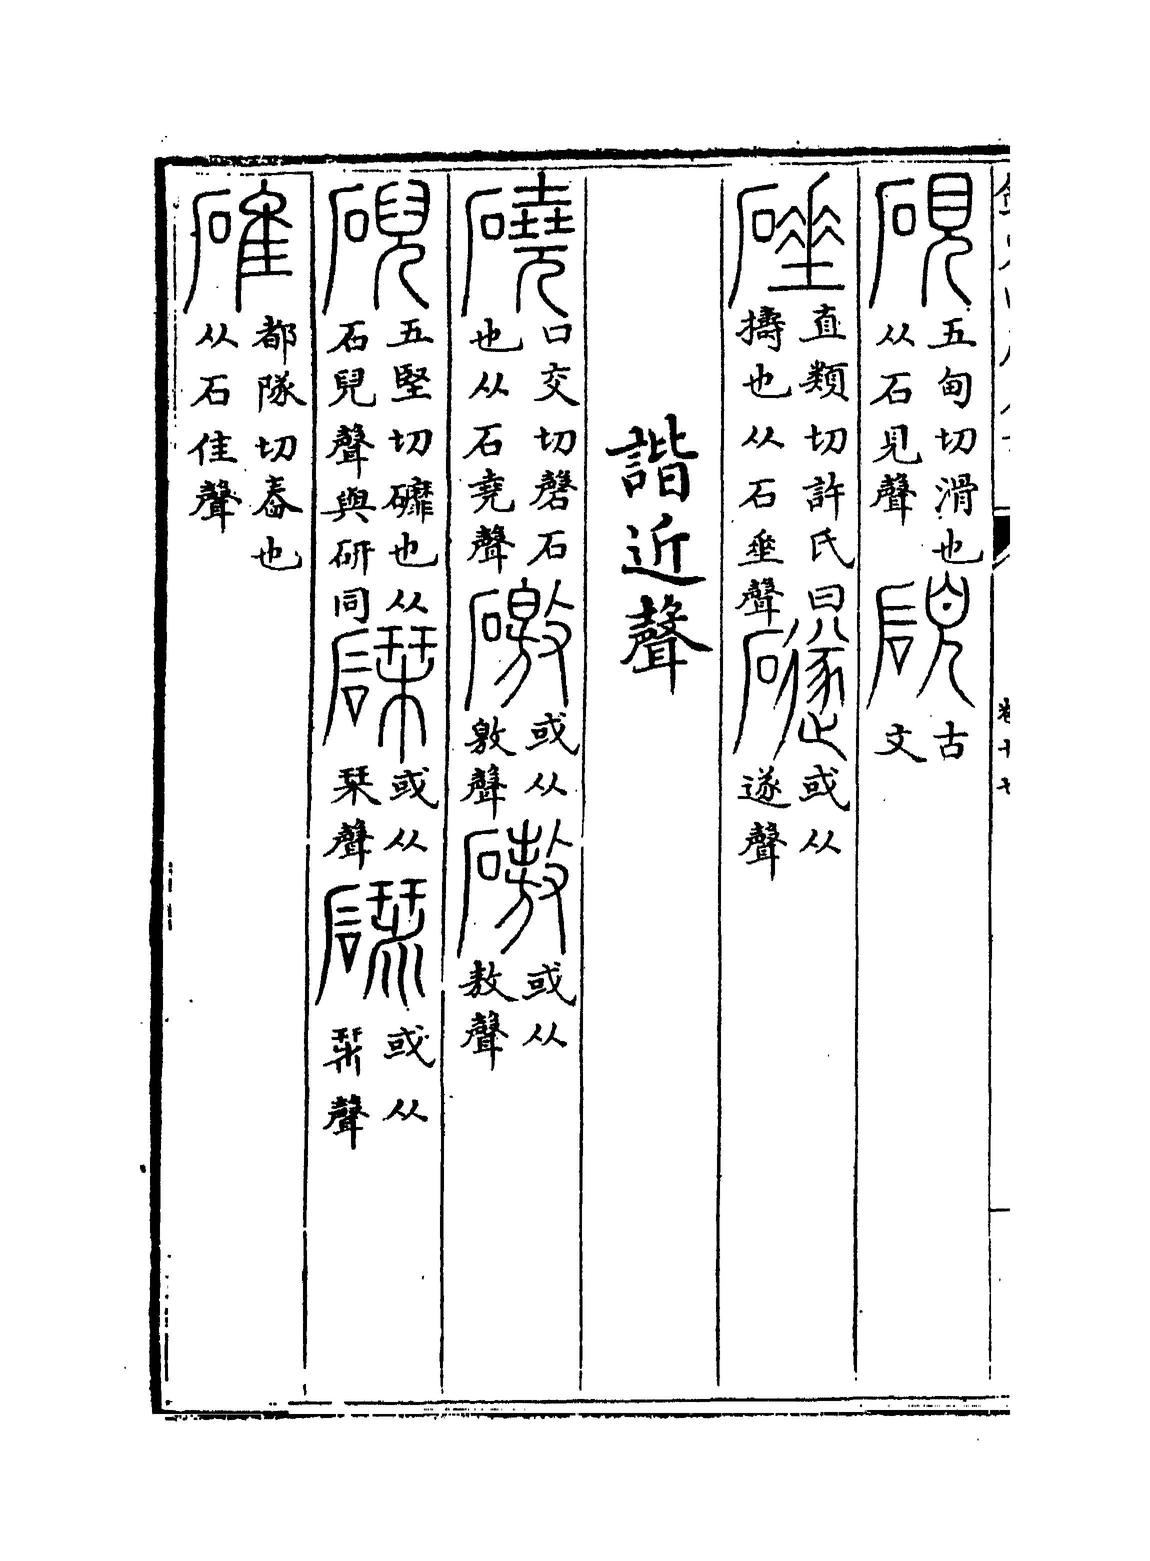 硯五甸切滑也从石見聲𥒢古文
硾直類切許氏曰擣也从石垂聲䃍或从遂聲
諧近聲
磽口交切磬石也从石堯聲礉或从敫聲磝或从敖聲
䂩五堅切礳也从石兒聲與研同或从琹聲或从聲
碓都隊切舂也从石隹聲
卷十七